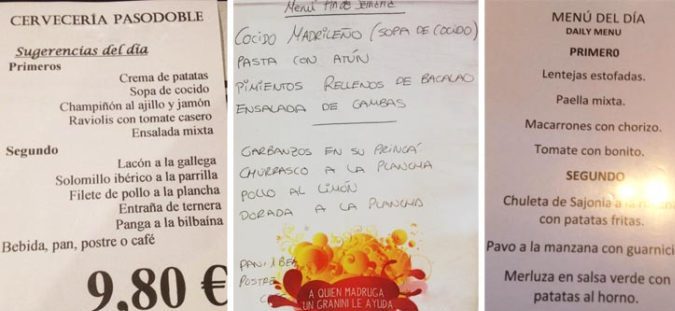 CERVECERÍA PASODOBLE
Sugerencias del día
Primeros
Crema de patatas
Sopa de cocido
Champiñón al ajillo y jamón
Raviolis con tomate casero
Ensalada mixta
Segundo
Lacón a la gallega
Solomillo ibérico a la parrilla
Filete de pollo a la plancha
Entraña de ternera
Panga a la bilbaína
Bebida, pan, postre o café
9,80 €
Menú fin de semana
COCIDO MADRILEÑO (SOPA DE COCIDO)
PASTA CON ATÚN
PIMIENTOS RELLENOS DE BACALAO
ENSALADA DE GAMBAS
GARBANZOS EN SU PRINGÁ
CHURRASCO A LA PLANCHA
POLLO AL LIMÓN
DORADA A LA PLANCHA
PAN, BEB
POSTRE
A QUIEN MADRUGA
UN GRANINI LE AYUDA
MENÚ DEL DÍA
DAILY MENU
PRIMERO
Lentejas estofadas.
Paella mixta.
Macarrones con chorizo.
Tomate con bonito.
SEGUNDO
Chuleta de Sajonia a la
con patatas fritas.
Pavo a la manzana con guarnici
Merluza en salsa verde con
patatas al horno.